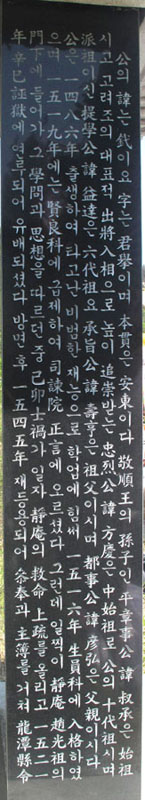 公의 諱는 㦤이요 字는 君擧이며 本貫은 安東이다 敬順王의 孫子인 平章事公 諱 叔承은 始祖
시고 고려조의 대표적 出將入相으로 높이 追崇받는 忠烈公 諱 方慶은 中始祖로 公의 十代祖시며
派祖이신 提學公 諱 益達은 六代祖요 承旨公 諱 壽亨은 祖父이시며 都事公 諱 彦弘은 父親이시다
公은 一四八六年 출생하여 타고난 비범한 재능으로 학업에 힘써 一五一六年 生員科에 入格하였
으며 一五一九年에는 賢良科에 급제하여 司諫院 正言에 오르셨다 그런데 일찍이 靜庵 趙光祖의
門下에 들어가 그 學問과 思想을 따르던 중 己卯士禍가 일자 靜庵의 救命 上疏를 올리고 一五二一
年 辛巳誣獄에 연루되어 유배되셨다 방면 후 一五四五年 재등용되어 參奉과 主簿를 거쳐 龍潭縣令